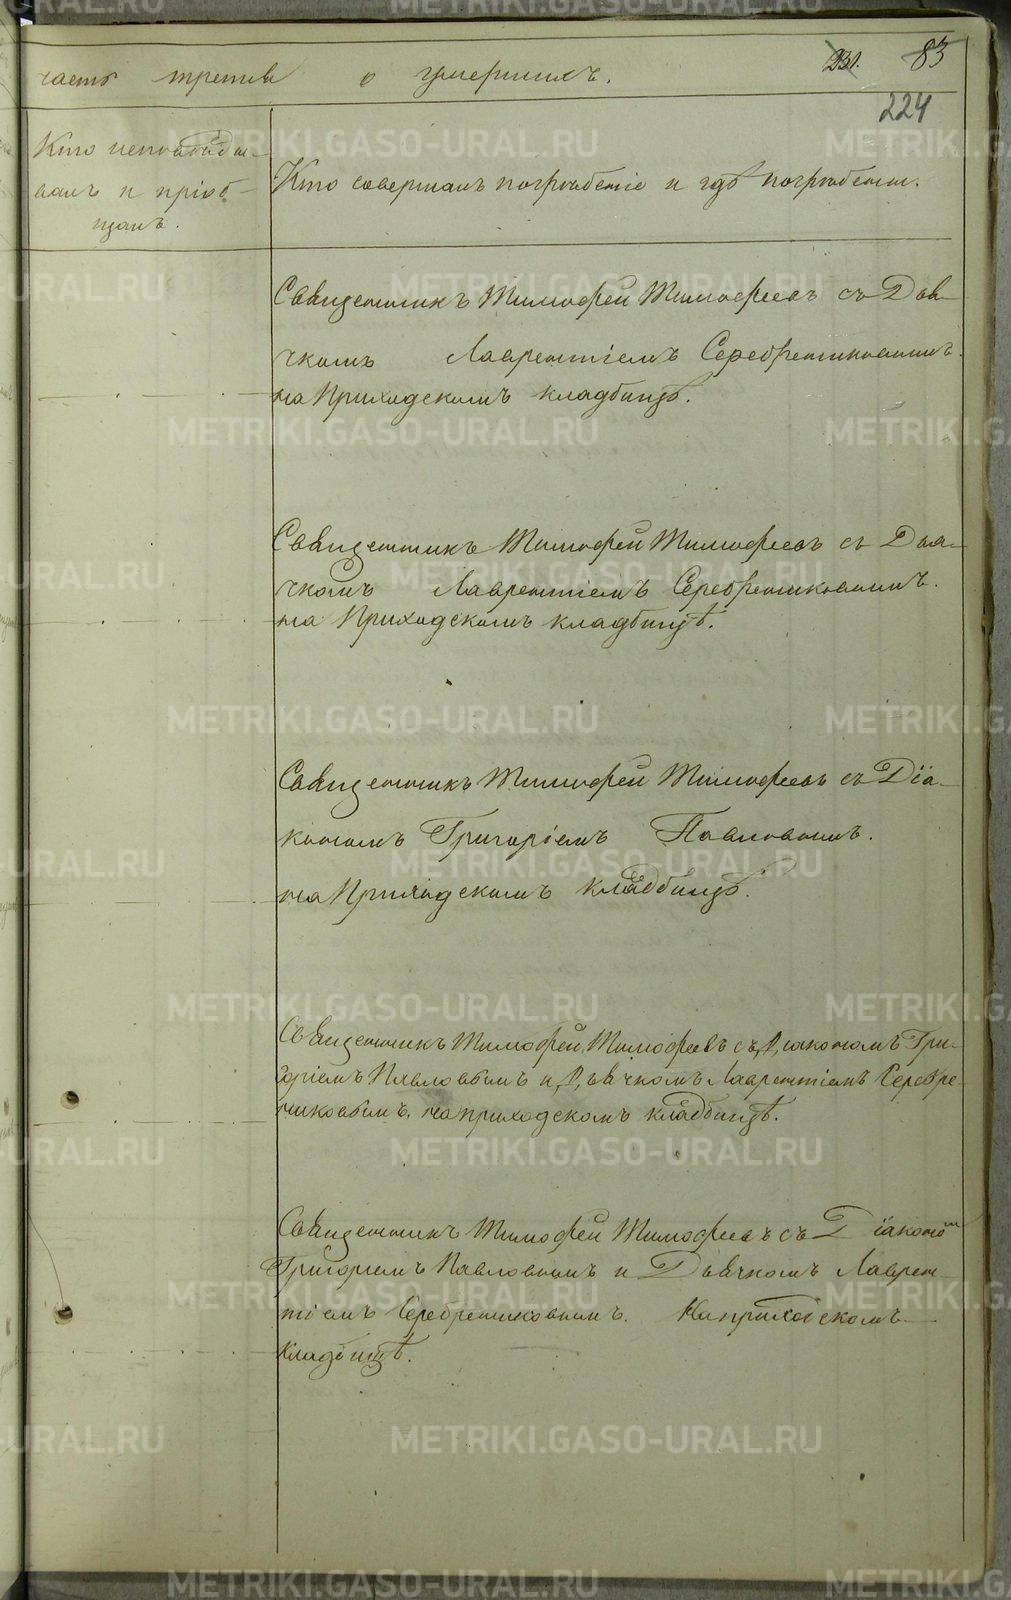 часть третья о умершихъ.
231. 83
224
Кто исповѣды-
валъ и пріоб-
щалъ.
Кто совершалъ погребѣніе и гдѣ погрѣбены.
Священникъ Тимофей Тимофеевъ съ Дья-
чкомъ Лаврентіемъ Серебренниковымъ.
на Приходскомъ кладбищѣ.
Священникъ Тимофей Тимофеевъ съ Дья-
чкомъ Лаврентіемъ Серебренниковымъ.
на Приходскомъ кладбищѣ.
Священникъ Тимофей Тимофеевъ съ Діа-
кономъ Григоріемъ Павловымъ.
на Приходскомъ кладбищѣ.
Священникъ Тимофей Тимофеевъ съ Діакономъ Гри-
горіемъ Павловымъ и Дьячкомъ Лаврентіемъ Серебре-
никовымъ. на приходскомъ кладбищѣ.
Священникъ Тимофей Тимофеевъ съ Діакономъ
Григоріемъ Павловымъ и Дьячкомъ Лаврен-
тіемъ Серебренниковымъ. На приходскомъ
кладбищѣ.
METRIKI.GASO-URAL.RU